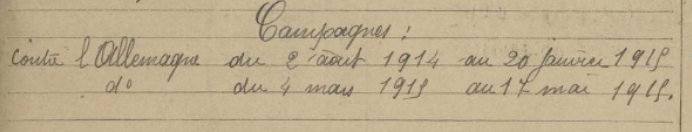 Campagnes :
contre l'Allemagne du 2 août 1914 au 20 janvier 1915
do du 4 mars 1915 au 17 mai 1915.